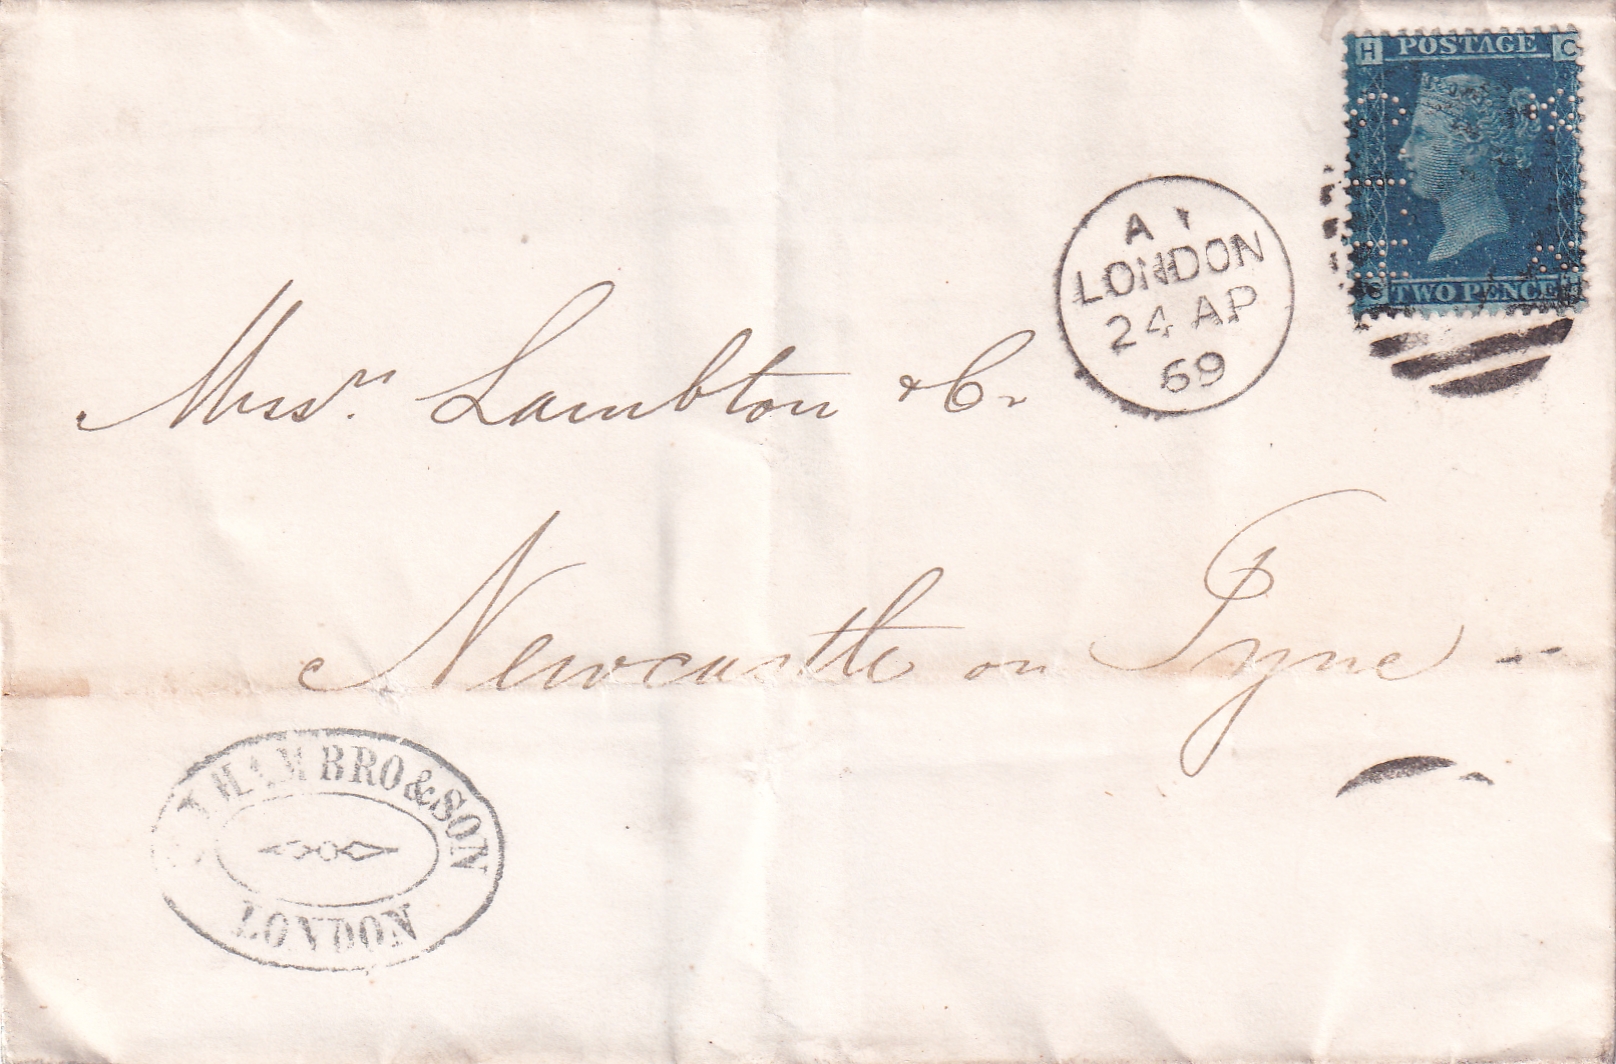 H POSTAGE C
C TWO PENCE H
A
LONDON
24 AP
69
Messrs. Lambton & Co
Newcastle on Tyne
HAMBRO & SON
LONDON